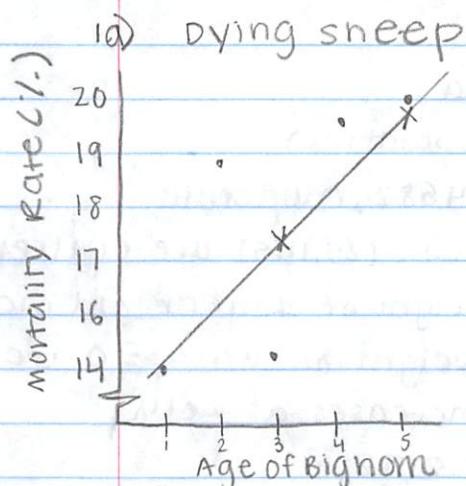 1a) Dying sheep
Mortality Rate (%)
20
19
18
17
16
14
1 2 3 4 5
Age of Bignom